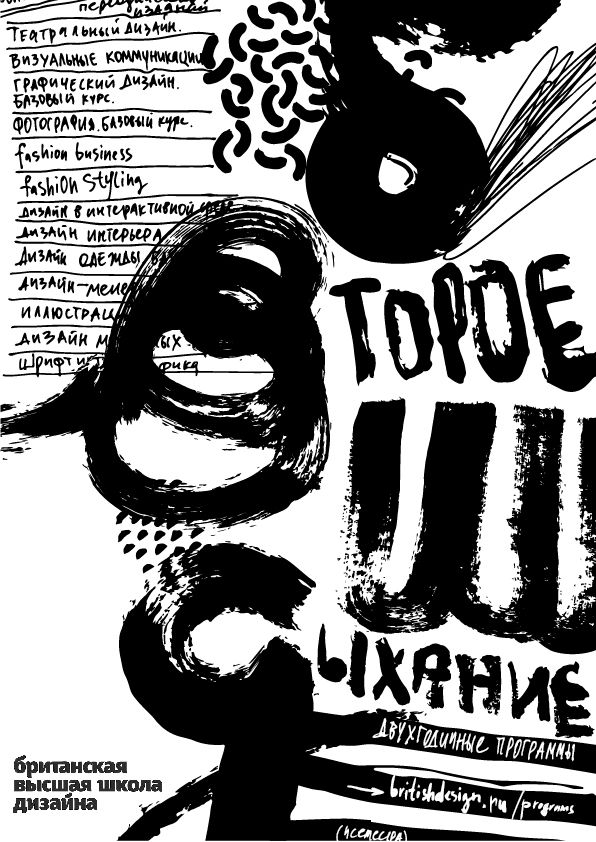 изданий
Театральный дизайн.
Визуальные коммуникации
Графический дизайн.
Базовый курс.
Фотография. Базовый курс.
fashion business
fashion styling
дизайн в интерактивной среде
дизайн интерьера
дизайн одежды
дизайн-мене
иллюстрац
дизайн
шрифт и
ВТОРОЕ
Ш
ЫХАНИЕ
ДВУХГОДИЧНЫЕ ПРОГРАММЫ
britishdesign.ru/programs
(4 семестра)
британская
высшая школа
дизайна